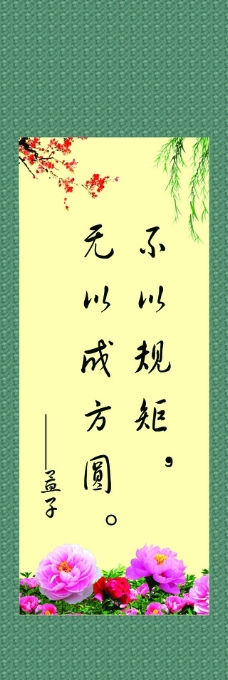 不以规矩，
无以成方圆。
——孟子